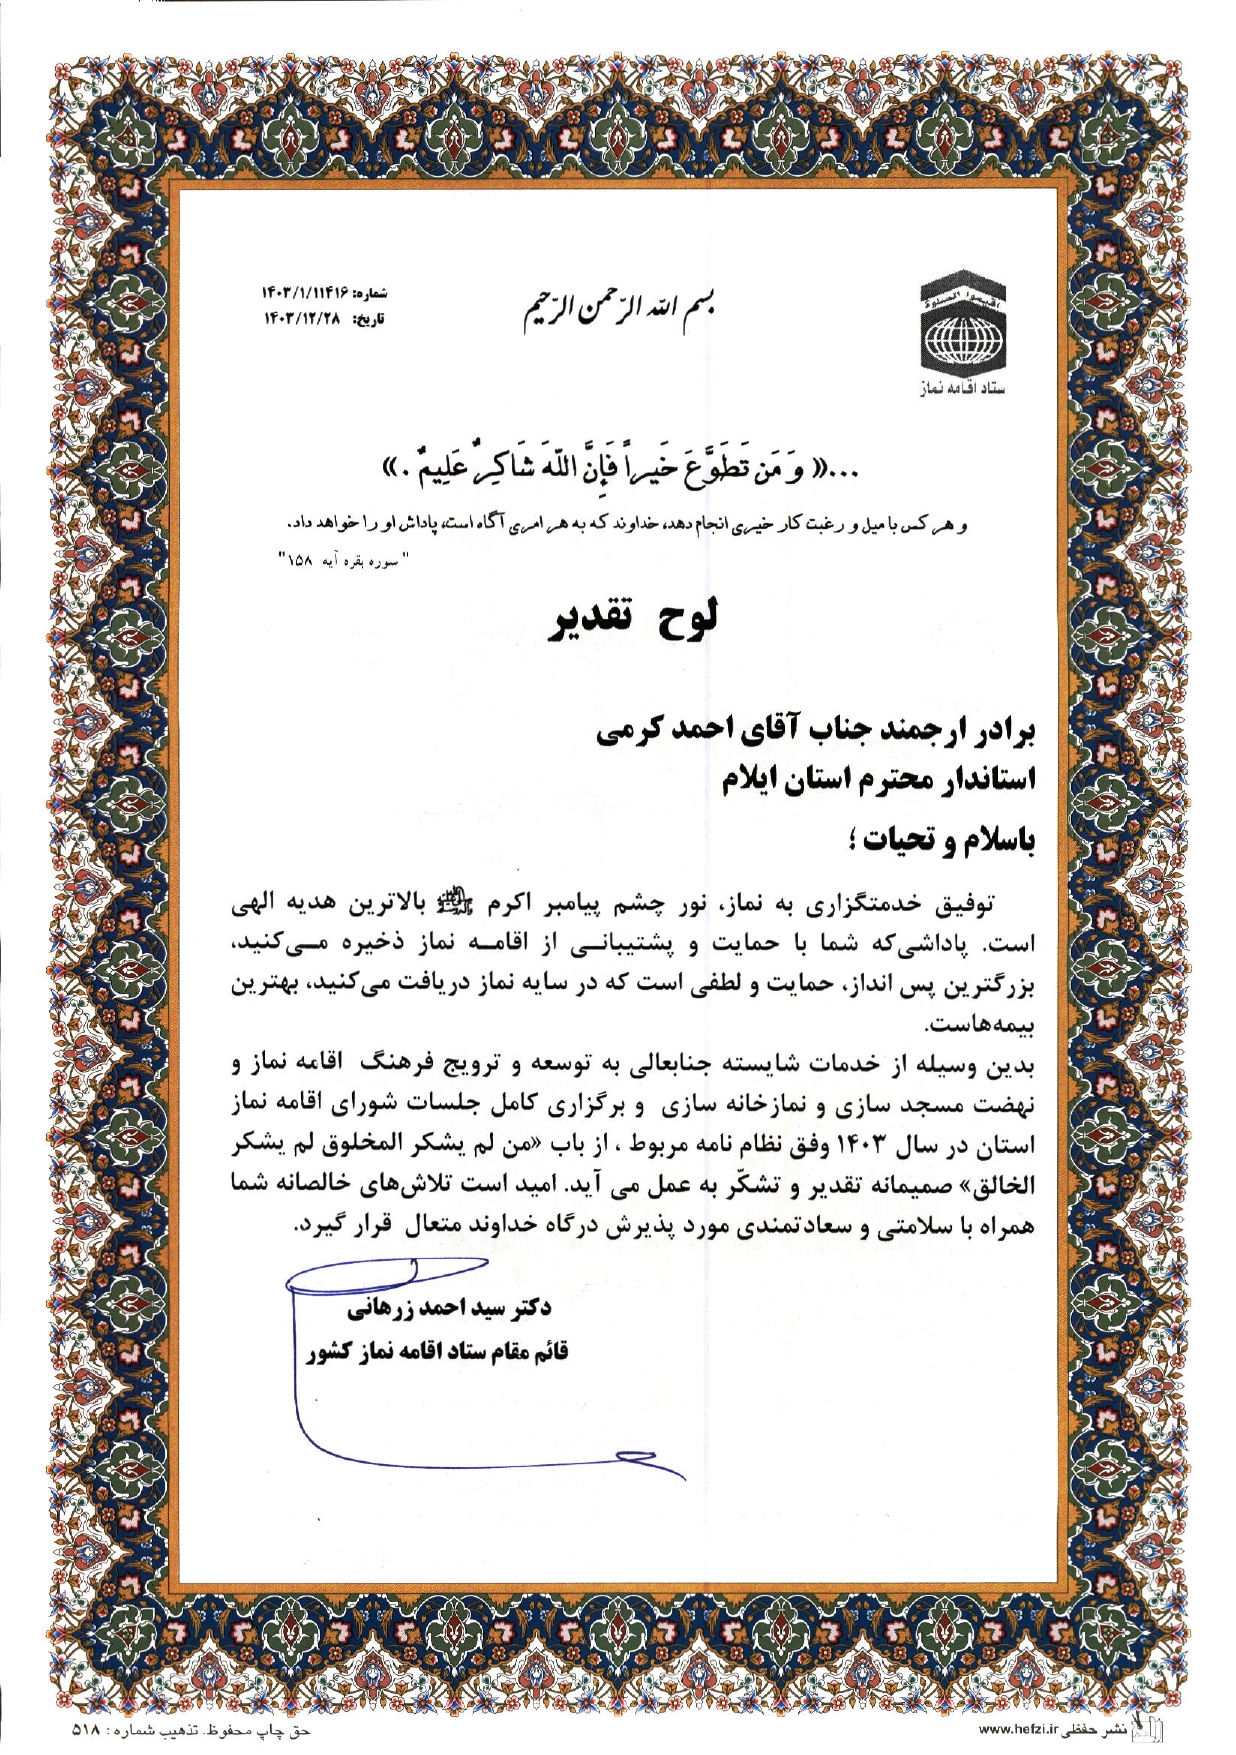 بسم الله الرّحمن الرّحیم
شماره: ۱۴۰۳/۱/۱۱۴۱۶
تاریخ: ۱۴۰۳/۱۲/۲۸
اقیموا الصلوة
ستاد اقامه نماز
...« وَ مَن تَطَوَّعَ خَیراً فَإِنَّ اللّهَ شَاکِرٌ عَلِیمٌ .»
و هر کس با میل و رغبت کار خیری انجام دهد، خداوند که به هر امری آگاه است، پاداش او را خواهد داد.
"سوره بقره آیه ۱۵۸"
لوح تقدیر
برادر ارجمند جناب آقای احمد کرمی
استاندار محترم استان ایلام
باسلام و تحیات ؛
توفیق خدمتگزاری به نماز، نور چشم پیامبر اکرم ﷺ بالاترین هدیه الهی
است. پاداشی‌که شما با حمایت و پشتیبانـی از اقامـه نماز ذخیره مـی‌کنید،
بزرگترین پس انداز، حمایت و لطفی است که در سایه نماز دریافت می‌کنید، بهترین
بیمه‌هاست.
بدین وسیله از خدمات شایسته جنابعالی به توسعه و ترویج فرهنگ اقامه نماز و
نهضت مسجد سازی و نمازخانه سازی و برگزاری کامل جلسات شورای اقامه نماز
استان در سال ۱۴۰۳ وفق نظام نامه مربوط ، از باب «من لم یشکر المخلوق لم یشکر
الخالق» صمیمانه تقدیر و تشکّر به عمل می آید. امید است تلاش‌های خالصانه شما
همراه با سلامتی و سعادتمندی مورد پذیرش درگاه خداوند متعال قرار گیرد.
دکتر سید احمد زرهانی
قائم مقام ستاد اقامه نماز کشور
نشر حفظی www.hefzi.ir
حق چاپ محفوظ. تذهیب شماره : ۵۱۸